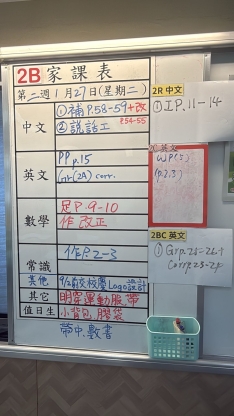 2B 家課表
第二週1月27日(星期二)
中文
①補P.58-59+改
P.54-55
②說話工
英文
PP p.15
Gr(2A) corr.
數學
足P.9-10
作 改正
常識
作P.2-3
其他
9/2前交校慶Logo設計
其它
明穿運動服,帶
值日生
小背包,膠袋
帶中,數書
2R 中文
①工P.11-14
英文
(p.2,3)
2BC 英文